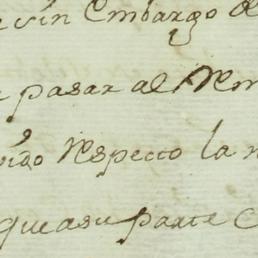 sin embargo de
pasar al Rem
vido respecto la
que asu parte C